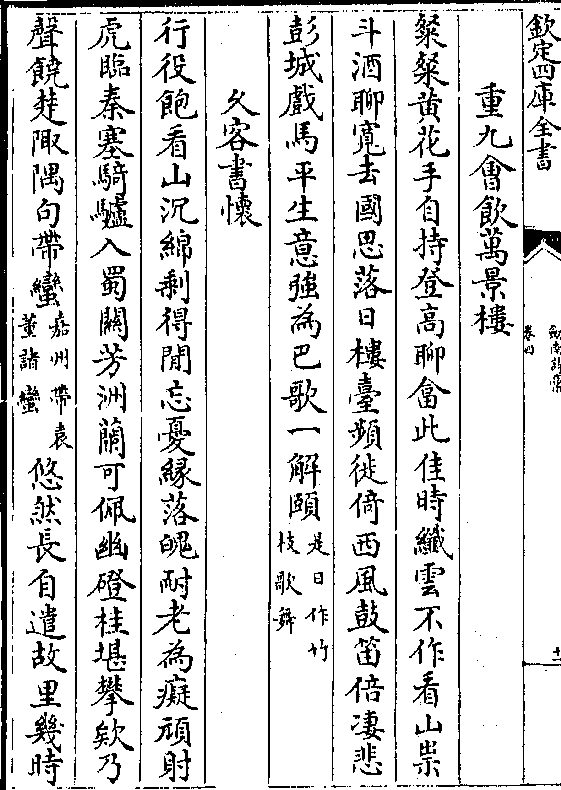 欽定四庫全書
劍南詩稾
卷四
十一
重九會飲萬景樓
粲粲黃花手自持登高聊畣此佳時纖雲不作看山祟
斗酒聊寬去國思落日樓臺頻徙倚西風鼓笛倍凄悲
彭城戲馬平生意強為巴歌一解頤是日作竹枝歌舞
久客書懷
行役飽看山沉綿剩得閒忘憂緣落魄耐老為癡頑射
虎臨秦塞騎驢入蜀關芳洲蘭可佩幽磴桂堪攀欸乃
聲饒楚陬隅句帶蠻嘉州帶袁董諸蠻悠然長自遣故里幾時